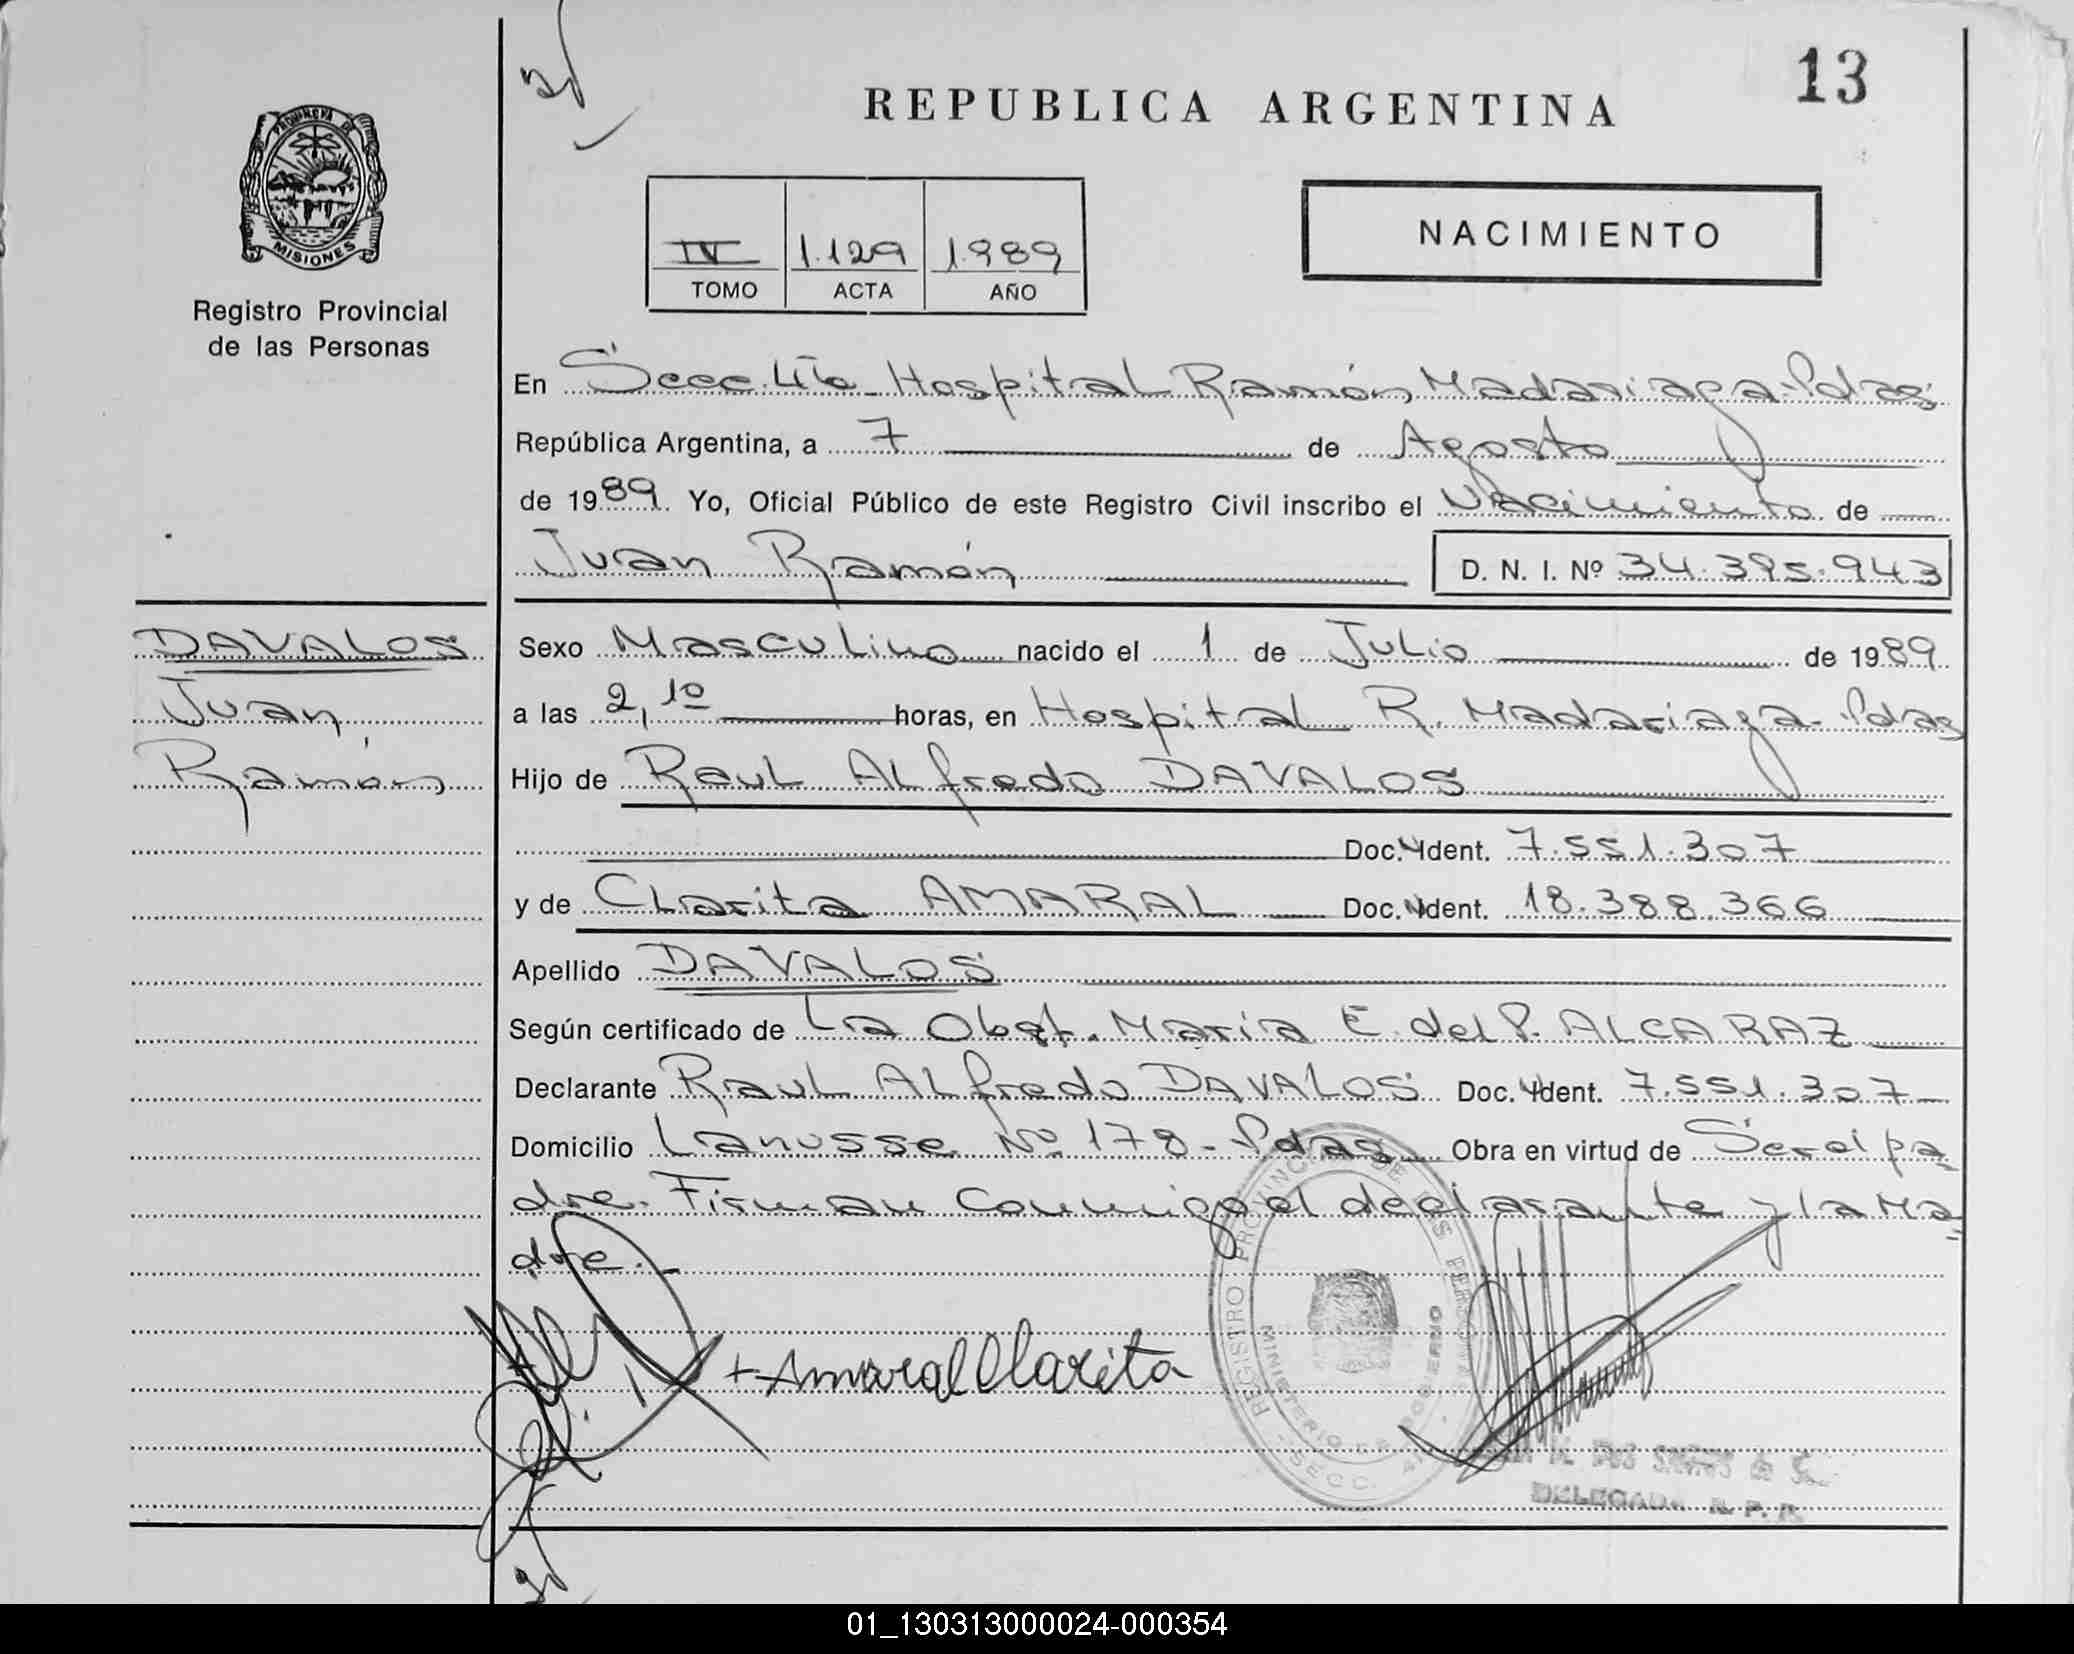 13
REPUBLICA ARGENTINA
PROVINCIA DE
MISIONES
Registro Provincial
de las Personas
NACIMIENTO
IV 1.129 1.989
TOMO ACTA AÑO
En Secc. 4ta Hospital Ramón Madariaga-Pdas
República Argentina, a 7 de Agosto
de 1989. Yo, Oficial Público de este Registro Civil inscribo el Nacimiento de
Juan Ramón D. N. I. Nº 34.395.943
DAVALOS
Juan
Ramón
Sexo Masculino nacido el 1 de Julio de 1989
a las 2,10 horas, en Hospital R. Madariaga-Pdas
Hijo de Raul Alfredo DAVALOS
Doc. Ident. 7.551.307
y de Clarita AMARAL Doc. Ident. 18.388.366
Apellido DAVALOS
Según certificado de La Obst. María E. del P. ALCARAZ
Declarante Raul Alfredo DAVALOS Doc. Ident. 7.551.307
Domicilio Lanusse Nº 178 - Pdas Obra en virtud de Ser el pa-
dre. Firman Conmigo el declarante y la Ma=
dre.-
+ Amaral Clarita
REGISTRO PROVINCIAL DE LAS PERSONAS
MINISTERIO DE GOBIERNO
SECC.
DOS SANTOS de
DELEGADA R. P. P.
01_130313000024-000354